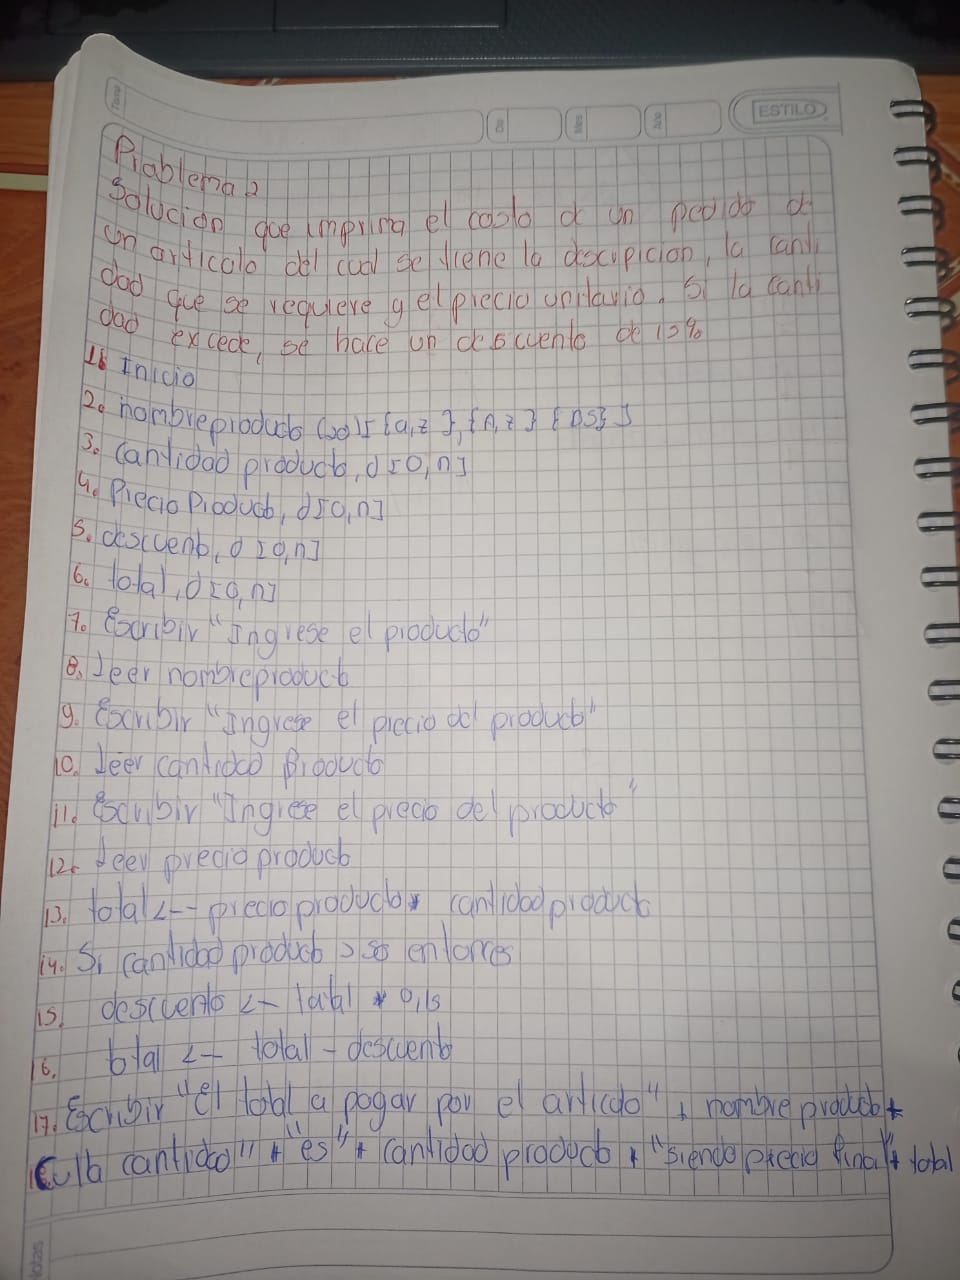 Tema
Día
Mes
Año
ESTILO
Problema 2
Solucion que imprima el costo d un pedido d
un articulo del cual se tiene la descripcion, la canti
dad que se requiere y el precio unitario. Si la canti
dad excede, se hace un descuento de 15%
1. Inicio
2. nombreproducto (20) [{a,z},{A,z}{ DS}]
3. cantidad producto, d[0,n]
4. Precio Producto, d[0,n]
5. descuento, d [0,n]
6. total, d[0,n]
7. Escribir "Ingrese el producto"
8. Leer nombreproducto
9. Escribir "Ingrese el precio del producto"
10. Leer cantidad Producto
11. Escribir "Ingrese el precio del producto"
12. Leer precio producto
13. total <-- precioproducto * cantidadproducto
14. Si cantidad producto > 50 entonces
15. descuento <- total * 0,15
16. total <- total - descuento
17. Escribir "El total a pagar por el articulo" + nombre producto +
la cantidad" + "es" + cantidad producto + "siendo precio final" + total
Notas